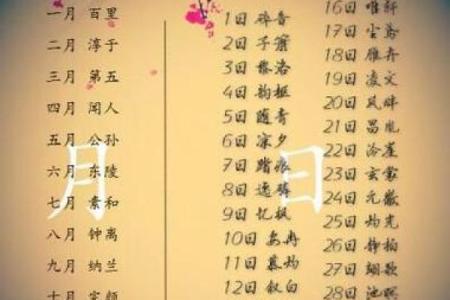 一月 百里
二月 淳于
三月 第五
四月 闻人
五月 公孙
六月 东陵
七月 素和
八月 钟离
九月 纳兰
十
月
1日 碎音
2日 子
3日 黎洛
4日 韵枢
5日 随青
6日 凉夕
7日 踏痕
8日 逸
9日 忆枫
10日 安冉
11日 慕灼
12日 叙白
日
16日 唯轩
17日 尘
18日 雁卉
19日 凌文
20日 夙
21日 昌胤
22日 洛崖
23日 玄霄
24日 元徵
25日 灼光
26日 铮柏
27日 翊歌
28日 池暝